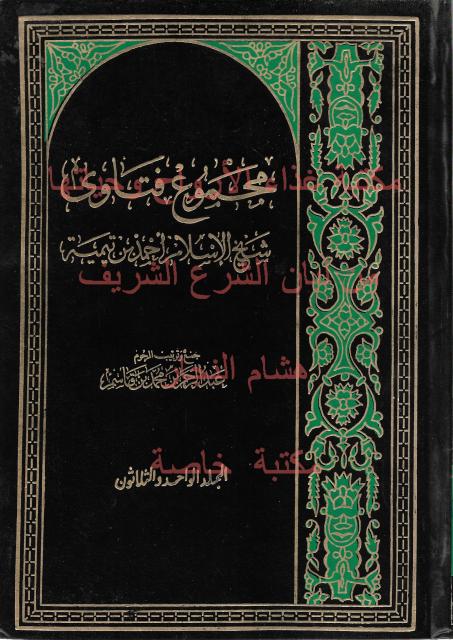 مجموع فتاوى
شيخ الإسلام أحمد بن تيمية
جمع وترتيب المرحوم
عبد الرحمن بن محمد بن قاسم
المجلد الواحد والثلاثون
الشرع الشريف
هشام
مكتبة خاصة